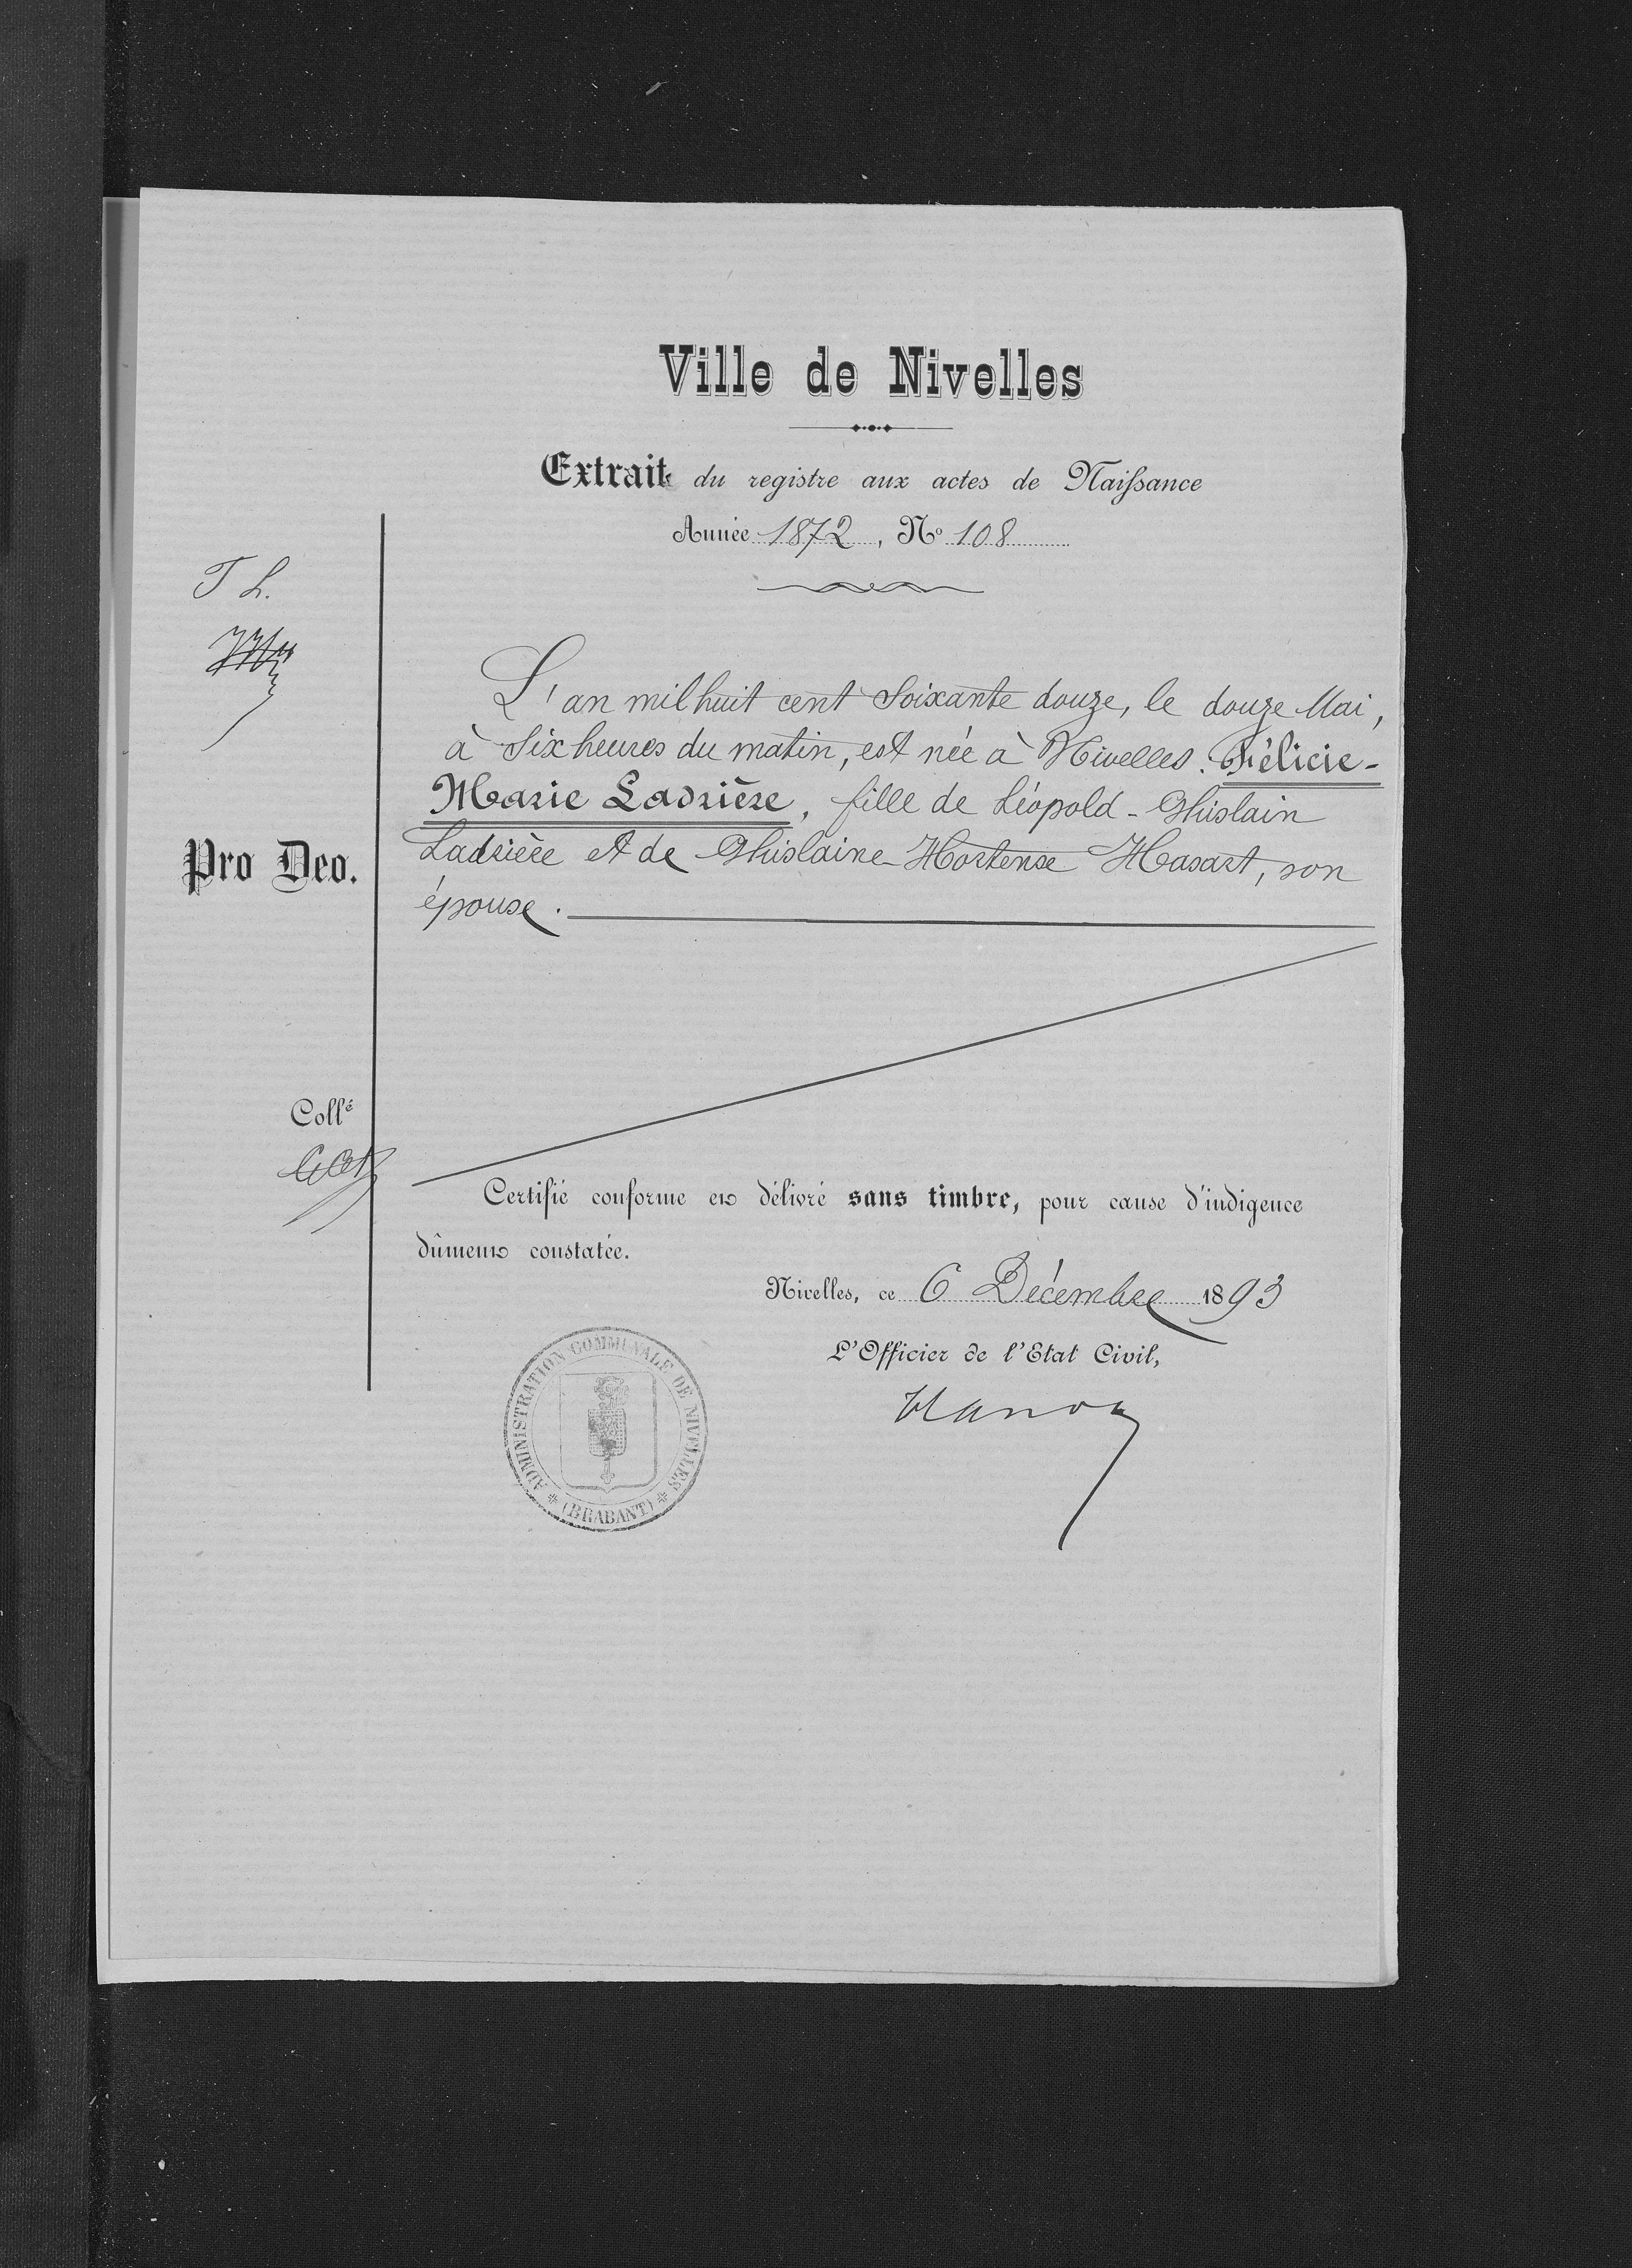 Ville de Nivelles
Extrait du registre aux actes de Naissance
Année 1872, Nº 108
T L.
L'an mil huit cent Soixante douze, le douze Mai,
à Six heures du matin, est née à Nivelles. Félicie-
Marie Ladrière, fille de Léopold-Ghislain
Ladrière et de Ghislaine-Hortense Hasart, son
épouse.
Pro Deo.
Collé
Certifié conforme et délivré sans timbre, pour cause d'indigence
dûment constatée.
Nivelles, ce 6 Décembre 1893
L'Officier de l'Etat Civil,
ADMINISTRATION COMMUNALE DE NIVELLES
(BRABANT)